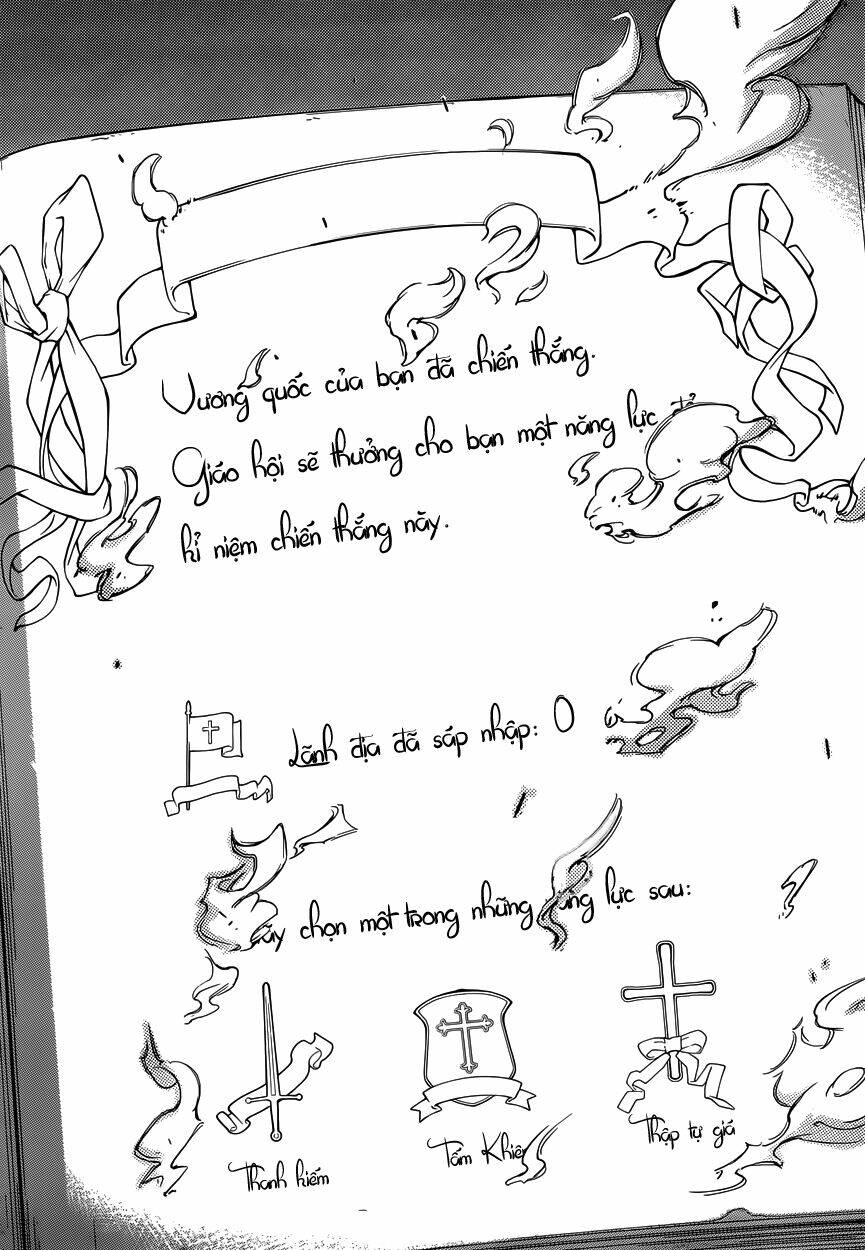 Vương quốc của bạn đã chiến thắng.
Giáo hội sẽ thưởng cho bạn một năng lực để
kỉ niệm chiến thắng này.
Lãnh địa đã sáp nhập: 0
chọn một trong những năng lực sau:
Thanh kiếm
Tấm Khiên
Thập tự giá